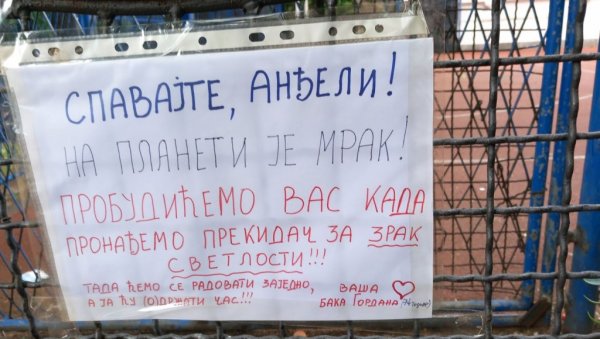 СПАВАЈТЕ, АНЂЕЛИ!
НА ПЛАНЕТИ ЈЕ МРАК!
ПРОБУДИЋЕМО ВАС КАДА
ПРОНАЂЕМО ПРЕКИДАЧ ЗА ЗРАК
СВЕТЛОСТИ!!!
ТАДА ЋЕМО СЕ РАДОВАТИ ЗАЈЕДНО,
А ЈА ЋУ (О)ДРЖАТИ ЧАС!!!
ВАША
БАКА ГОРДАНА